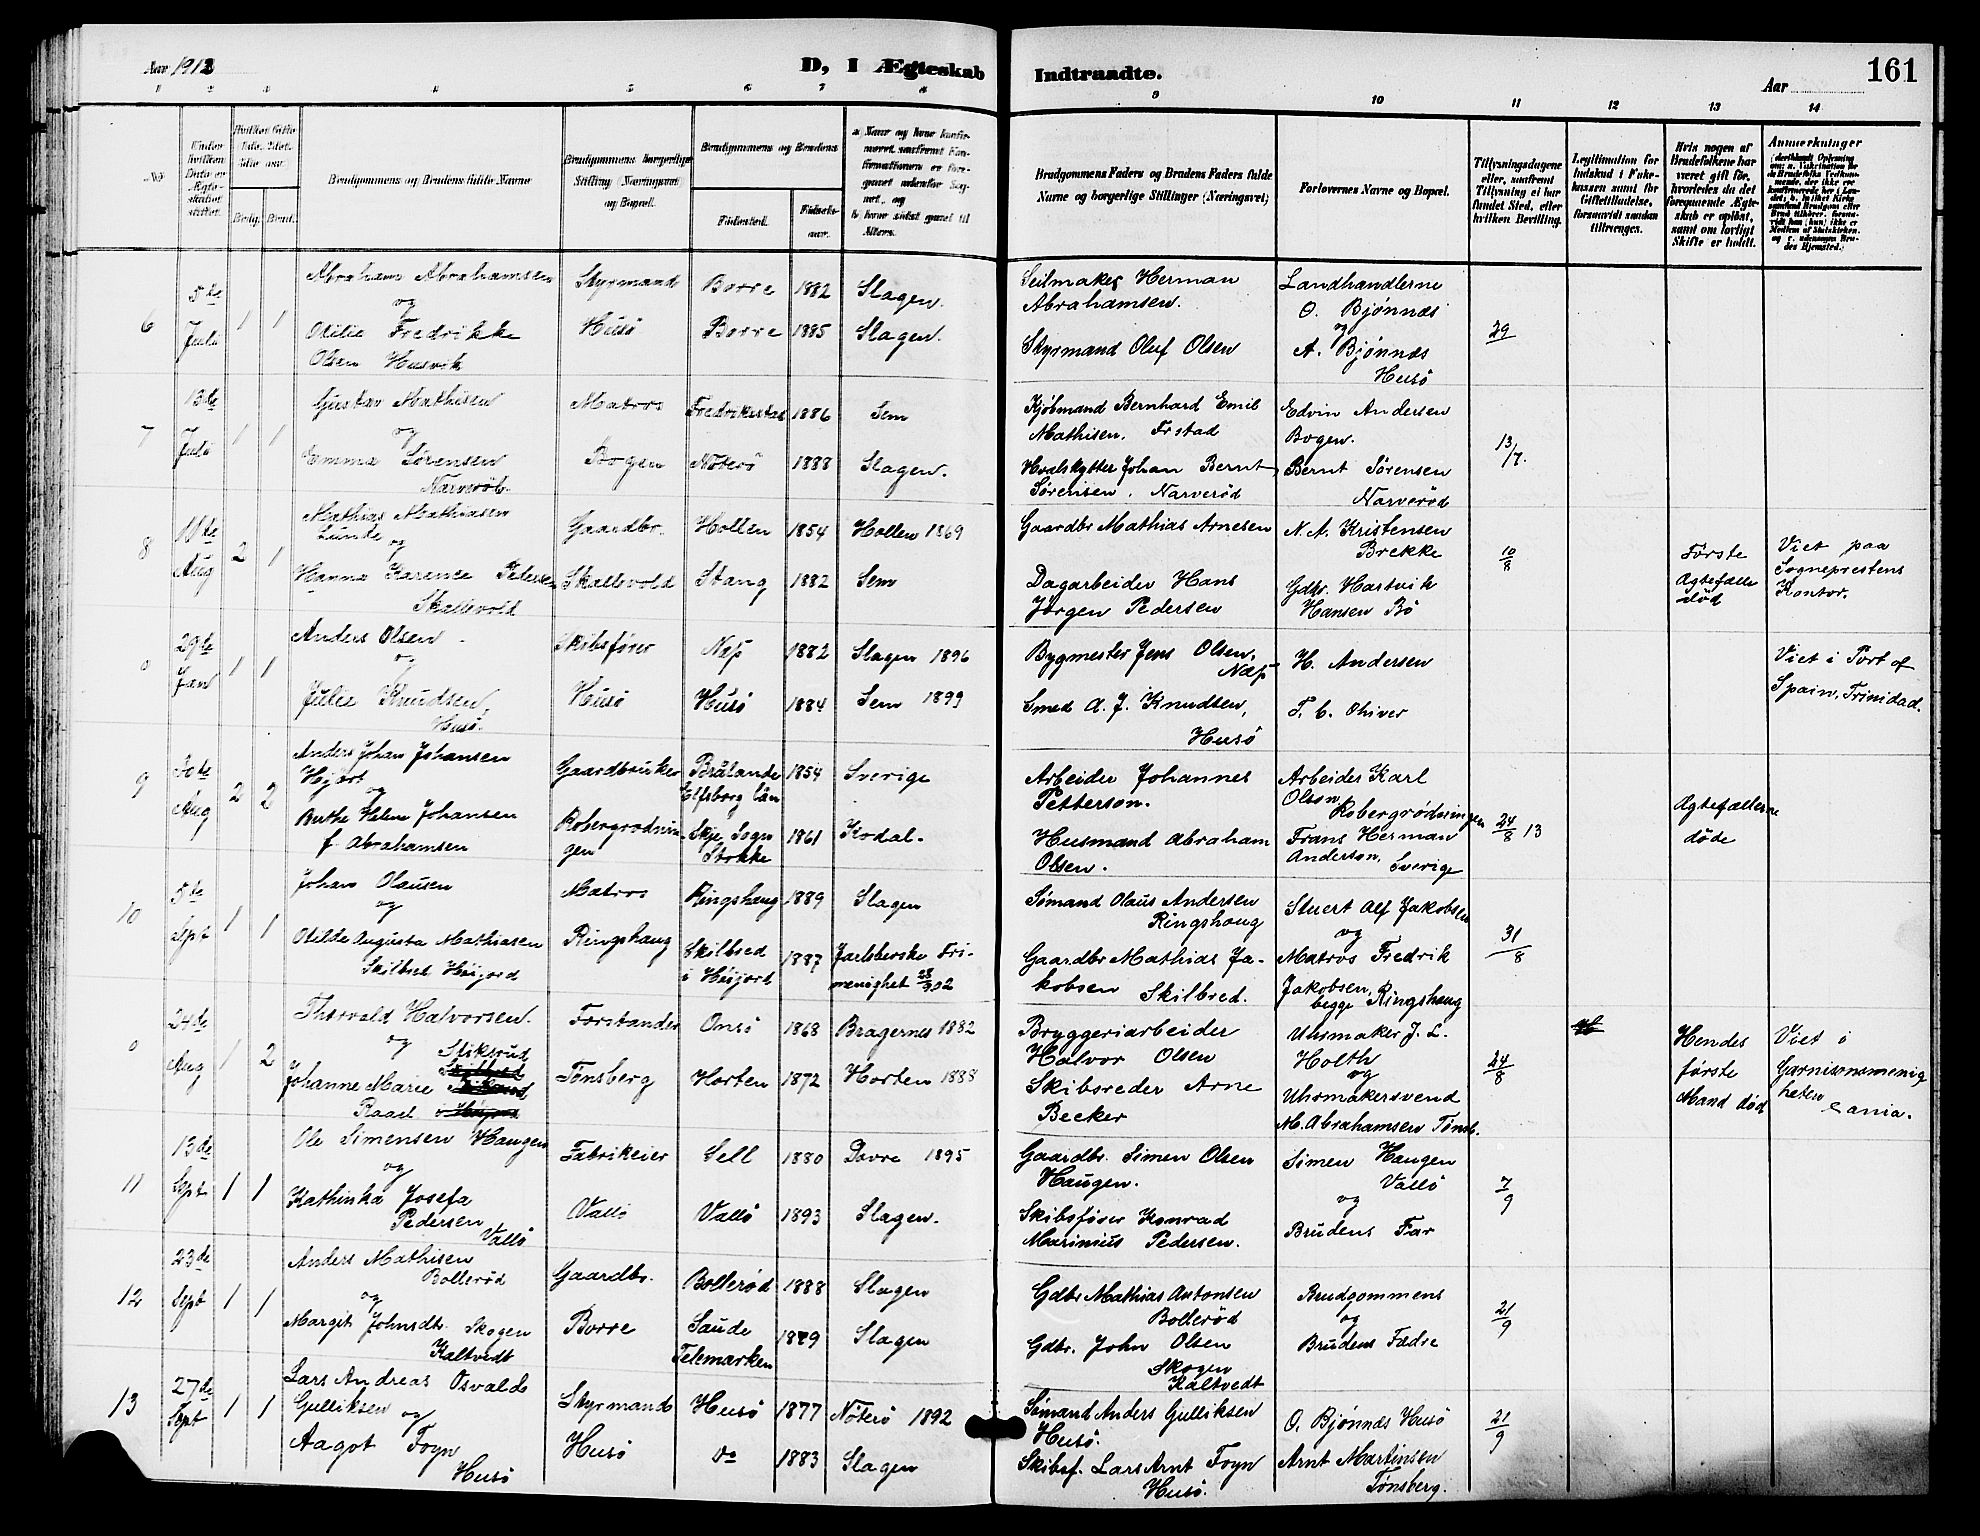 Aar 1913
D, I Ægteskab Indtraadte.
Aar
161
1 2 3 4 5 6 7 8 9 10 11 12 13 14
No
Under hvilken Dato er Ægteskabet stiftet.
Brudg. Brud.
Brudgommens og Brudens fulde Navne
Brudgommens borgerlige Stilling (Næringsvei) og Bopæl.
Brudgommens og Brudens
Fødested. Fødselsaar.
Brudgommens Faders og Brudens Faders fulde Navne og borgerlige Stillinger (Næringsvei)
Forlovernes Navne og Bopæl.
Tillysningsdagene eller, saafremt Tillysning ei har fundet Sted, efter hvilken Bevilling.
Legitimation for Indskud i Enkekassen samt for Giftetilladelse, forsaavidt saadan tiltrænges.
Hvis nogen af Brudefolkene har været gift før, hvorledes da det foregaaende Ægteskab er opløst, samt om lovligt Skifte er holdt.
Anmerkninger
6 5te Juli 1 1
Abraham Abrahamsen
og
Otilie Fredrikke
Olsen Husvik
Styrmand
Husö
Borre 1882 Slagen.
Borre 1885 Slagen.
Seilmaker Herman
Abrahamsen.
Styrmand Oluf Olsen
Landhandlerne
O. Bjönnæs
og
A. Bjönnæs
Husö
29
7 13de Juli 1 1
Gustav Mathisen
og
Emma Sörensen
Narveröd.
Matros
Bogen
Fredrikstad 1886 Sem
Nöterö 1888 Slagen.
Kjöbmand Bernhard Emil
Mathisen. Frstad
Hvalskytter Johan Bernt
Sörensen. Narveröd
Edvin Andersen
Bogen.
Bernt Sörensen
Narveröd
13/7.
8 10de Aug 2 1
Mathias Mathiasen
Lunde og
Hanna Karence Pedersen
Skallevold
Gaardbr.
Skallevold
Hollen 1854 Hollen 1869
Stang 1882 Sem
Gaardbr Mathias Arnesen
Dagarbeider Hans
Jörgen Pedersen
N. A. Kristensen
Brekke
Gdbr. Hartvik
Hansen Bö
10/8
Förste
Ægtefælle
död
Viet paa
Sogneprestens
Kontor.
0 29de Jan 1 1
Anders Olsen
og
Julie Knudsen,
Husö.
Skibsförer
Husö
Næs 1882 Slagen 1896
Husö 1884 Sem 1899
Bygmester Jens Olsen,
Næs
Smed A. J. Knudsen,
Husö
H. Andersen
T. C. Ohiver
Viet i Port of
Spain, Trinidad.
9 30te Aug 2 2
Anders Johan Johansen
Hjort
og
Berthe Helene Johansen
f. Abrahamsen
Gaardbruker
Robergrödnin-
gen
Brålanda 1854 Sverige
Elfsborg län
Skje Sogn 1861 Kodal.
Stokke
Arbeider Johannes
Petterson.
Husmand Abraham
Olsen.
Arbeider Karl
Olson,
Robergrödningen
Frans Herman
Anderson, Sverige
24/8 13
Ægtefællerne
döde
10 5te Sept 1 1
Johan Olausen
og
Otilde Augusta Mathiasen
Skilbred Höijord
Matros
Ringshaug
Ringshaug 1889 Slagen
Skilbred
i Höijord 1887 Jarlsbergske Fri-
menighet 28/9 02
Sömand Olaus Andersen
Ringshaug
Gaardbr Mathias Ja-
kobsen Skilbred.
Stuert Alf Jakobsen
og
Matros Fredrik
Jakobsen,
begge Ringshaug
31/8
0 24de Aug 1 2
Thorvald Halvorsen
og Stiksrud
Johanne Marie
Raael
Forstander
Tönsberg
Onsö 1868 Bragernes 1882
Horten 1872 Horten 1888
Bryggeriarbeider
Halvor Olsen
Skibsreder Arne
Becker
Uhrmaker J. L.
Holth
og
Uhrmakersvend
M. Abrahamsen Tönsb.
24/8
Hendes
förste
Mand död
Viet i
Garnisonsmenig
heten
Xania.
11 13de Sept 1 1
Ole Simensen Haugen
og
Kathinka Josefa
Pedersen
Vallö
Fabrikeier
Vallö
Sell 1880 Dovre 1895
Vallö 1893 Slagen.
Gaardbr. Simen Olsen
Haugen.
Skibsförer Konrad
Marinius Pedersen.
Simen Haugen
Vallö
og
Brudens Far
7/9
12 23de Sept 1 1
Anders Mathisen
Bolleröd
og
Margit Johnsdtr. Skogen
Kaltvedt
Gaardbr.
Borre
Bolleröd 1888 Slagen
Saude 1889 Slagen
Telemarken
Gdbr Mathias Antonsen
Bolleröd
Gdbr. John Olsen
Skogen
Kaltvedt
Brudgommens
og
Brudens Fædre
21/9
13 27de Sept 1 1
Lars Andreas Osvald
Gulliksen og
Aagot Foyn
Husö
Styrmand
Husö
Husö 1877 Nöterö 1892
do 1883 Slagen
Sömand Anders Gulliksen
Husö.
Skibsf. Lars Arnt Foyn
Husö.
O. Bjönnæs Husö
Arnt Martinsen
Tönsberg.
21/9